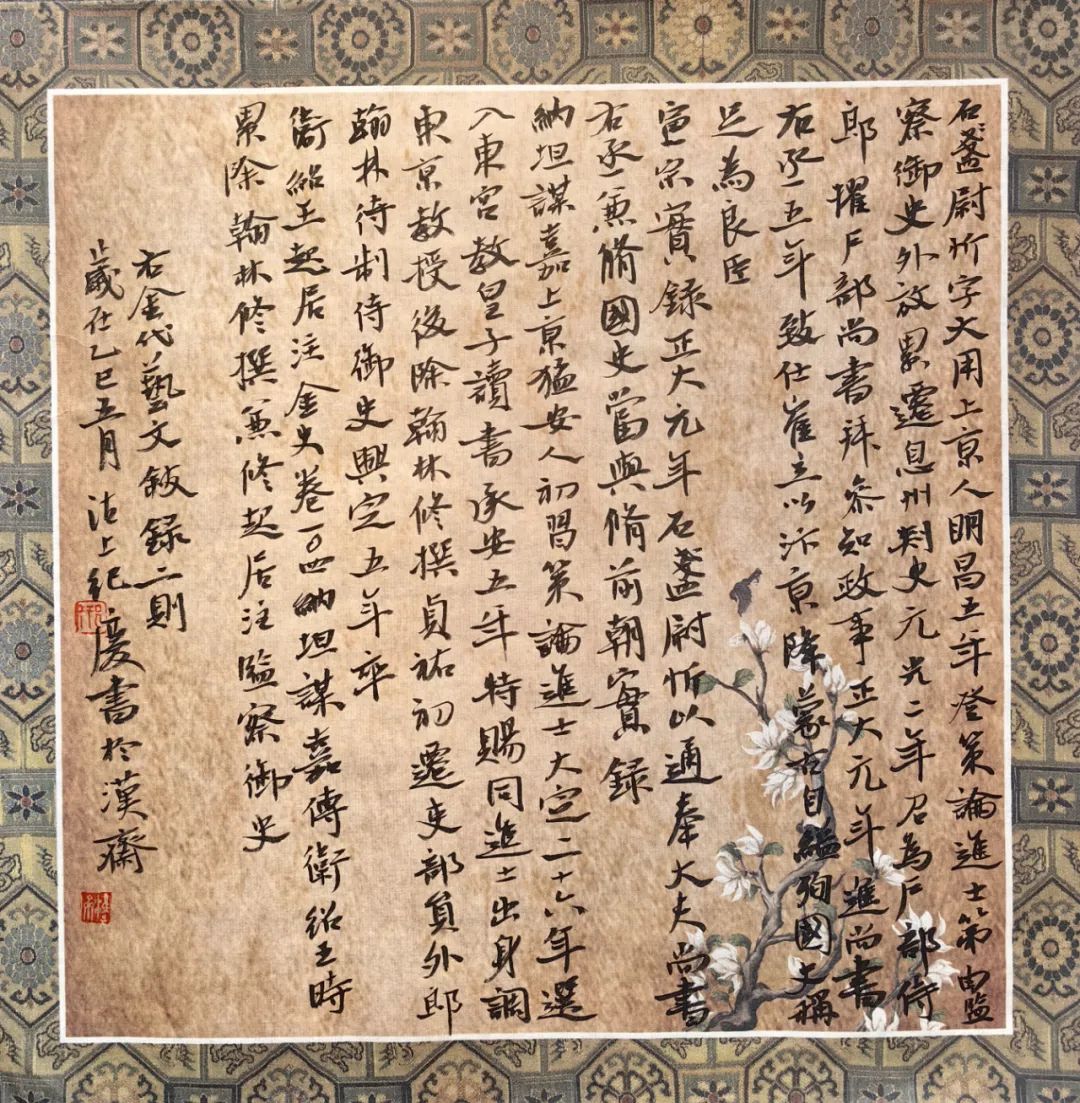 石盞尉忻字大用上京人明昌五年登策論進士第由監
察御史外放累遷息州刺史元光二年召為户部侍
郎擢户部尚書拜參知政事正大元年進尚書
右丞五年致仕崔立以汴京降蒙古自縊殉國史稱
足為良臣
宣宗實錄正大元年石盞尉忻以通奉大夫尚書
右丞兼脩國史當與脩前朝實錄
納坦謀嘉上京猛安人初習策論進士大定二十六年選
入東宮教皇子讀書承安五年特賜同進士出身調
東京教授後除翰林修撰貞祐初遷吏部員外郎
翰林待制侍御史興定五年卒
衞紹王起居注金史卷一〇四納坦謀嘉傳衛紹王時
累除翰林修撰兼修起居注監察御史
右金代藝文敍錄二則
歲在乙巳五月沽上紀慶書於漢齋